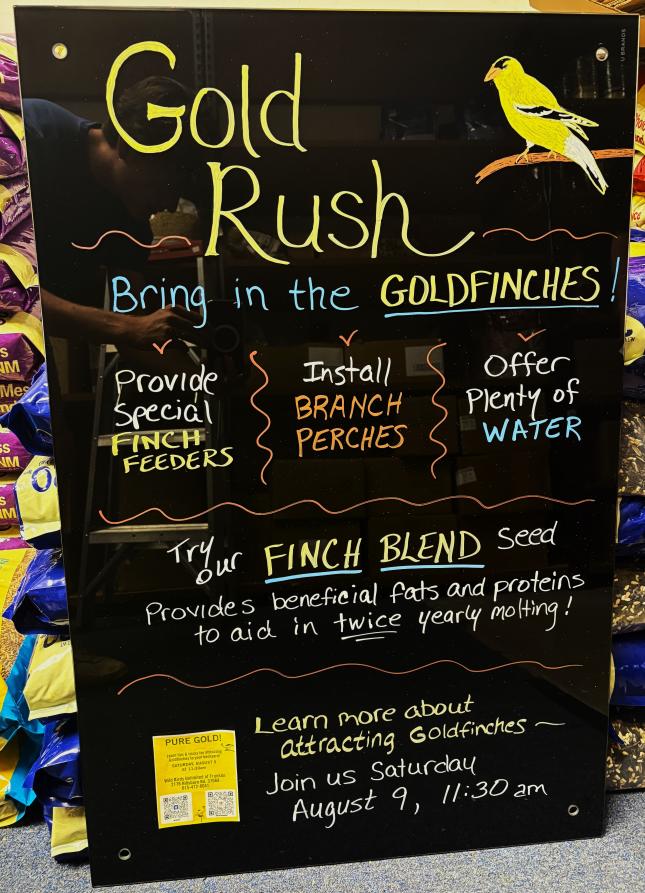 Gold
Rush
Bring in the GOLDFINCHES!
Provide
Special
FINCH
FEEDERS
Install
BRANCH
PERCHES
Offer
Plenty of
WATER
Try
our FINCH BLEND Seed
Provides beneficial fats and proteins
to aid in twice yearly molting!
Learn more about
attracting Goldfinches
Join us Saturday
August 9, 11:30 am
PURE GOLD!
SATURDAY, AUGUST 9
Wild Birds Unlimited of Franklin
U BRANDS